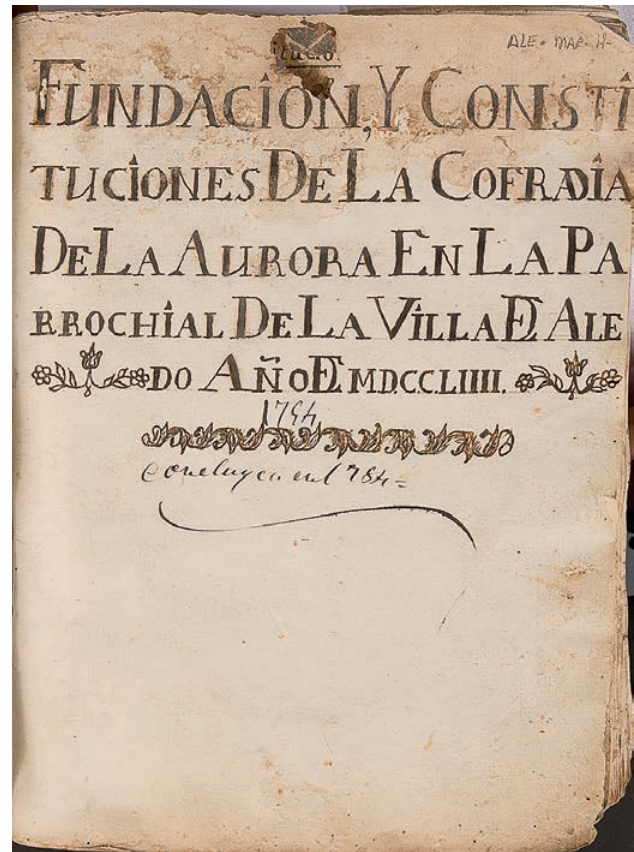 ALE. MAP. H-
FUNDACION, Y CONSTI
TUCIONES DE LA COFRADIA
DE LA AURORA EN LA PA
RROCHIAL DE LA VILLA DE ALE
DO AÑO DE MDCCLIIII.
1754
Concluye en 1784=